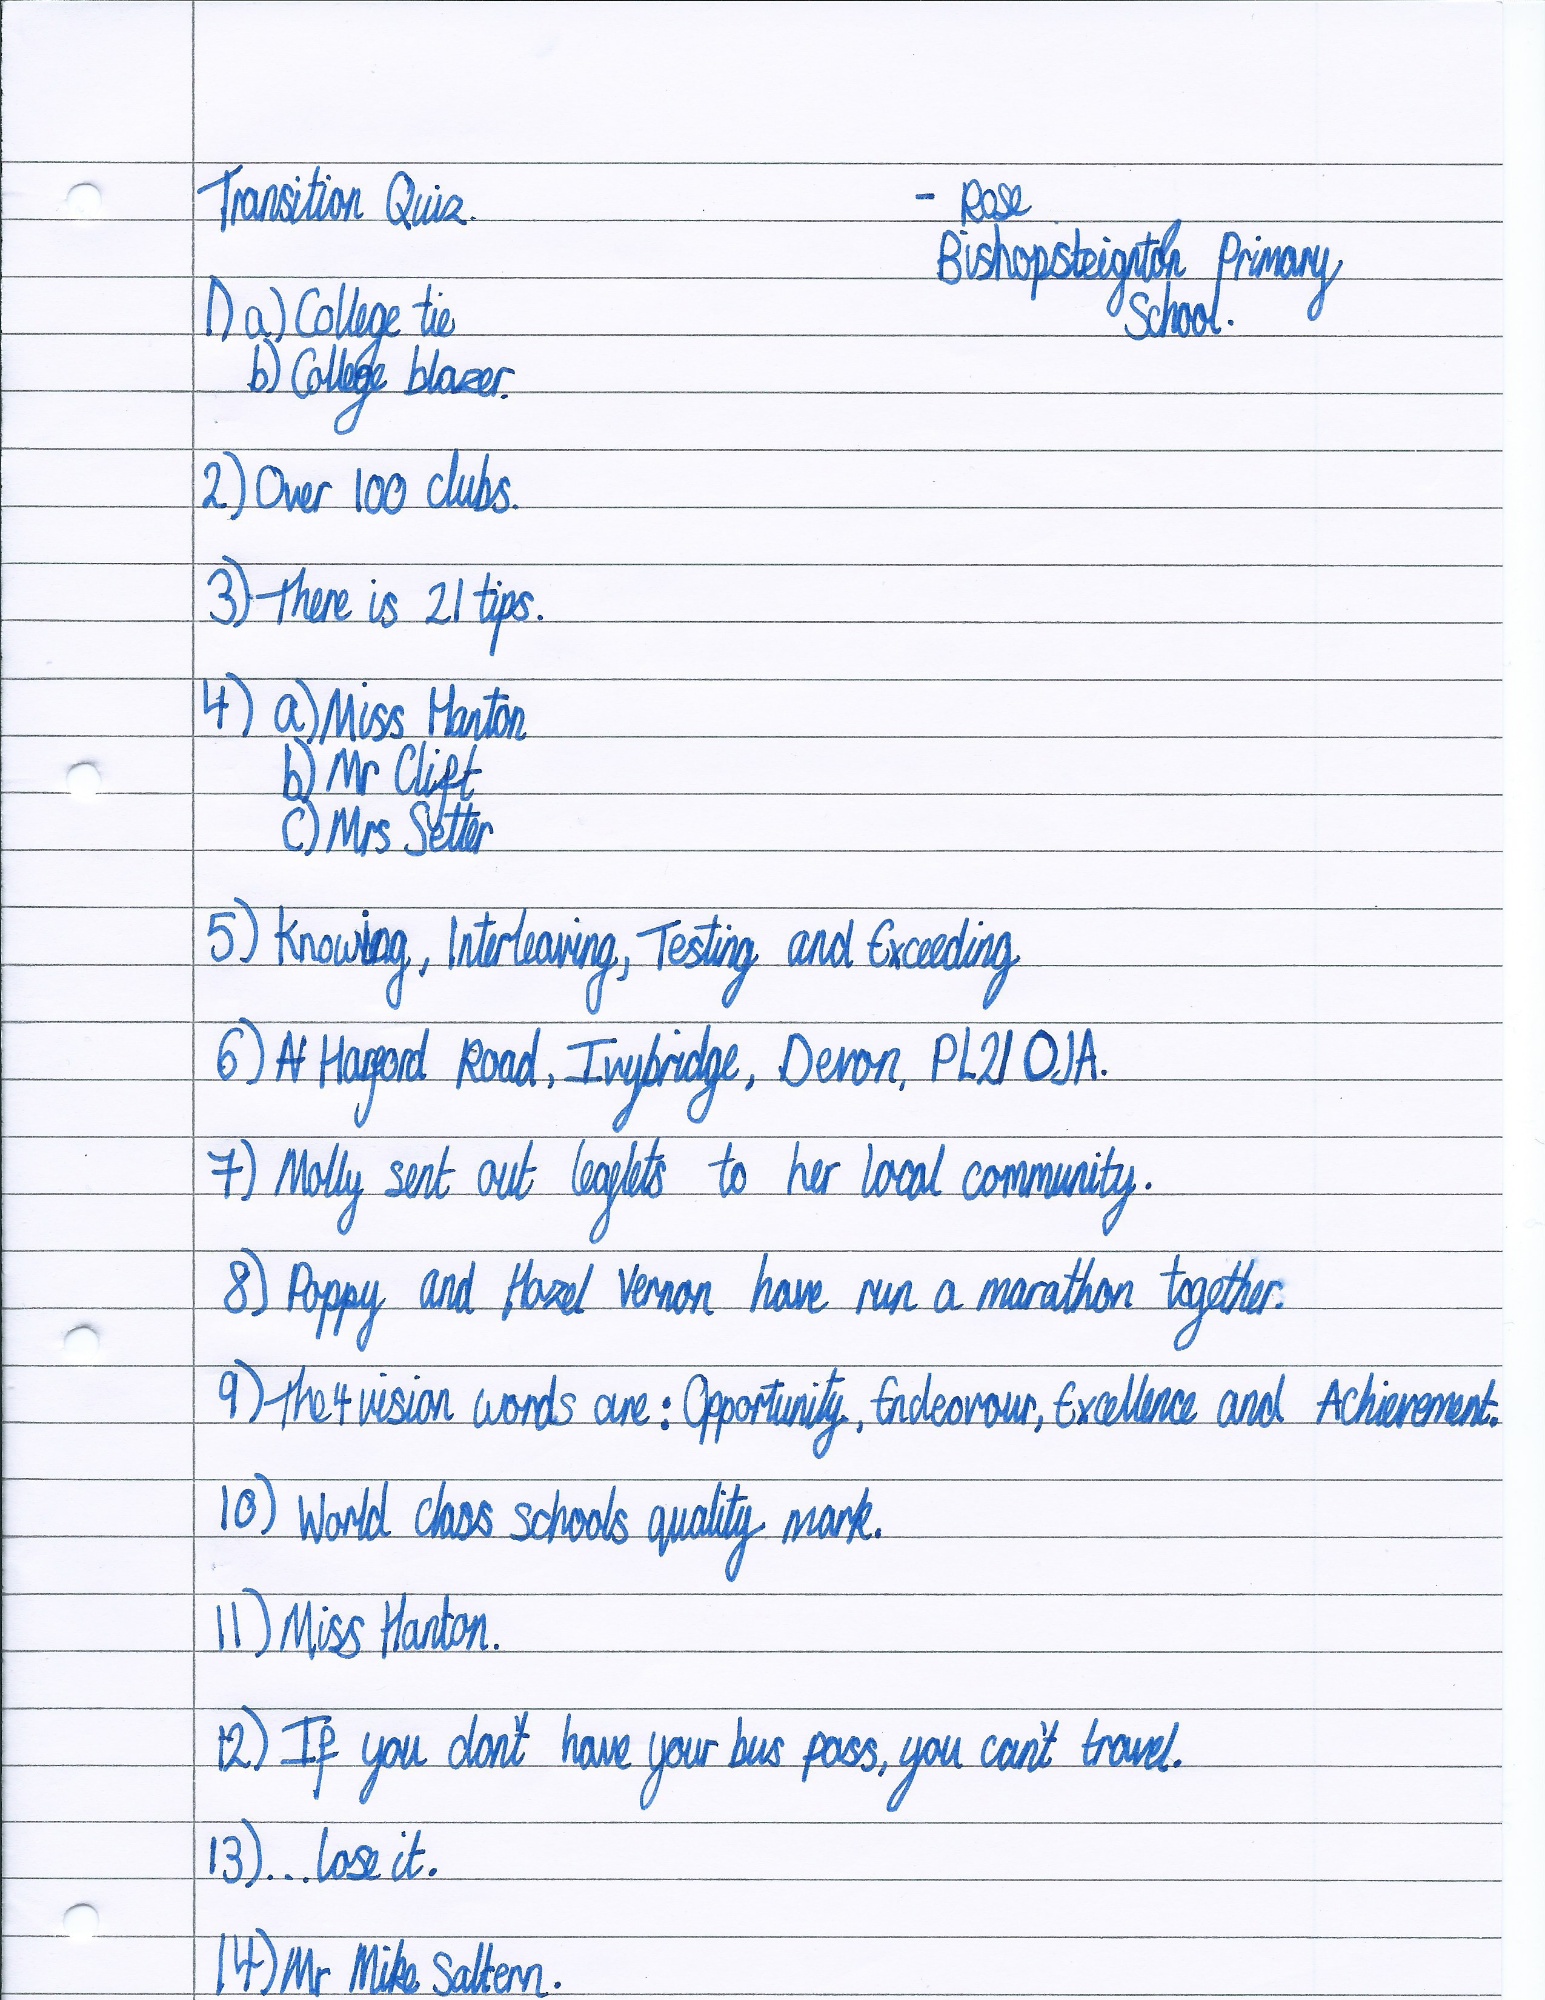 Transition Quiz.
- Rose
Bishopsteignton Primary
School.
1) a) College tie
b) College blazer.
2) Over 100 clubs.
3) There is 21 tips.
4) a) Miss Hanton
b) Mr Clift
c) Mrs Setter
5) Knowing, Interleaving, Testing and Exceeding
6) At Harford Road, Ivybridge, Devon, PL21 0JA.
7) Molly sent out leaflets to her local community.
8) Poppy and Hazel Vernon have run a marathon together.
9) The 4 vision words are: Opportunity, Endeavour, Excellence and Achievement.
10) World class schools quality mark.
11) Miss Hanton.
12) If you don't have your bus pass, you can't travel.
13) ...lose it.
14) Mr Mike Saltern.